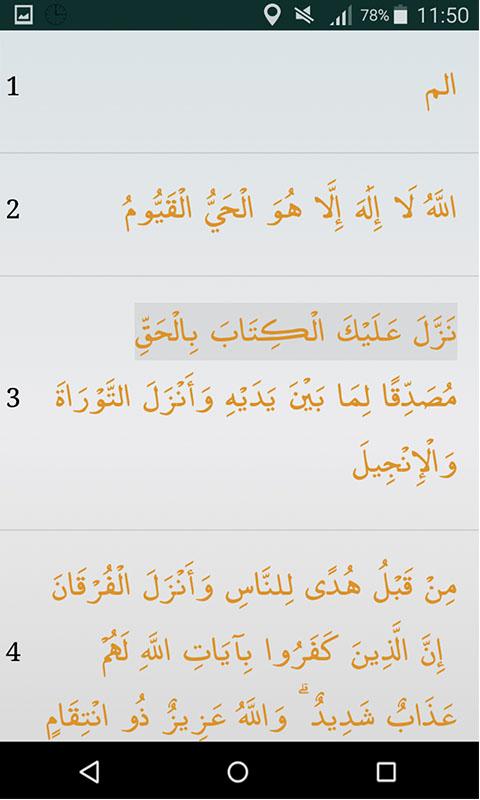 78% 11:50
1 الم
2 اللَّهُ لَا إِلَٰهَ إِلَّا هُوَ الْحَيُّ الْقَيُّومُ
نَزَّلَ عَلَيْكَ الْكِتَابَ بِالْحَقِّ
3 مُصَدِّقًا لِمَا بَيْنَ يَدَيْهِ وَأَنْزَلَ التَّوْرَاةَ
وَالْإِنْجِيلَ
مِنْ قَبْلُ هُدًى لِلنَّاسِ وَأَنْزَلَ الْفُرْقَانَ
4 إِنَّ الَّذِينَ كَفَرُوا بِآيَاتِ اللَّهِ لَهُمْ
عَذَابٌ شَدِيدٌ ۗ وَاللَّهُ عَزِيزٌ ذُو انْتِقَامٍ